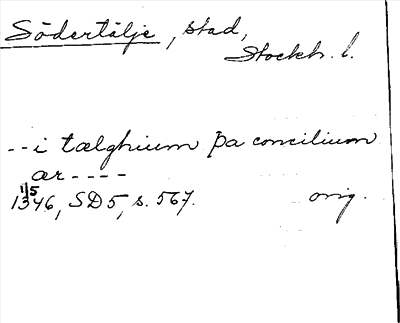 Södertälje, stad,
Stockh. l.
--i tælghium þa concilium
ær----
1/5
1346, SD5, s. 567. orig.